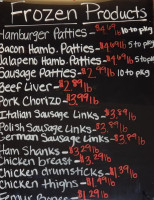 Frozen Products
Hamburger Patties - $4.69 lb 10 to pkg
Bacon Hamb. Patties - $4.69 lb 5 to pkg
Jalapeno Hamb. Patties - $4.69 lb 5 to pkg
Sausage Patties - $2.99 lb 10 to pkg
Beef Liver - $2.89 lb
Pork Chorizo - $3.99 lb
Italian Sausage Links - $3.89 lb
Polish Sausage Links - $3.89 lb
German Sausage Links - $3.89 lb
Ham Shanks - $3.29 lb
Chicken breast - $3.29 lb
Chicken drumsticks - $1.39 lb
Chicken thighs - $1.99 lb
Bones - $1.29 lb